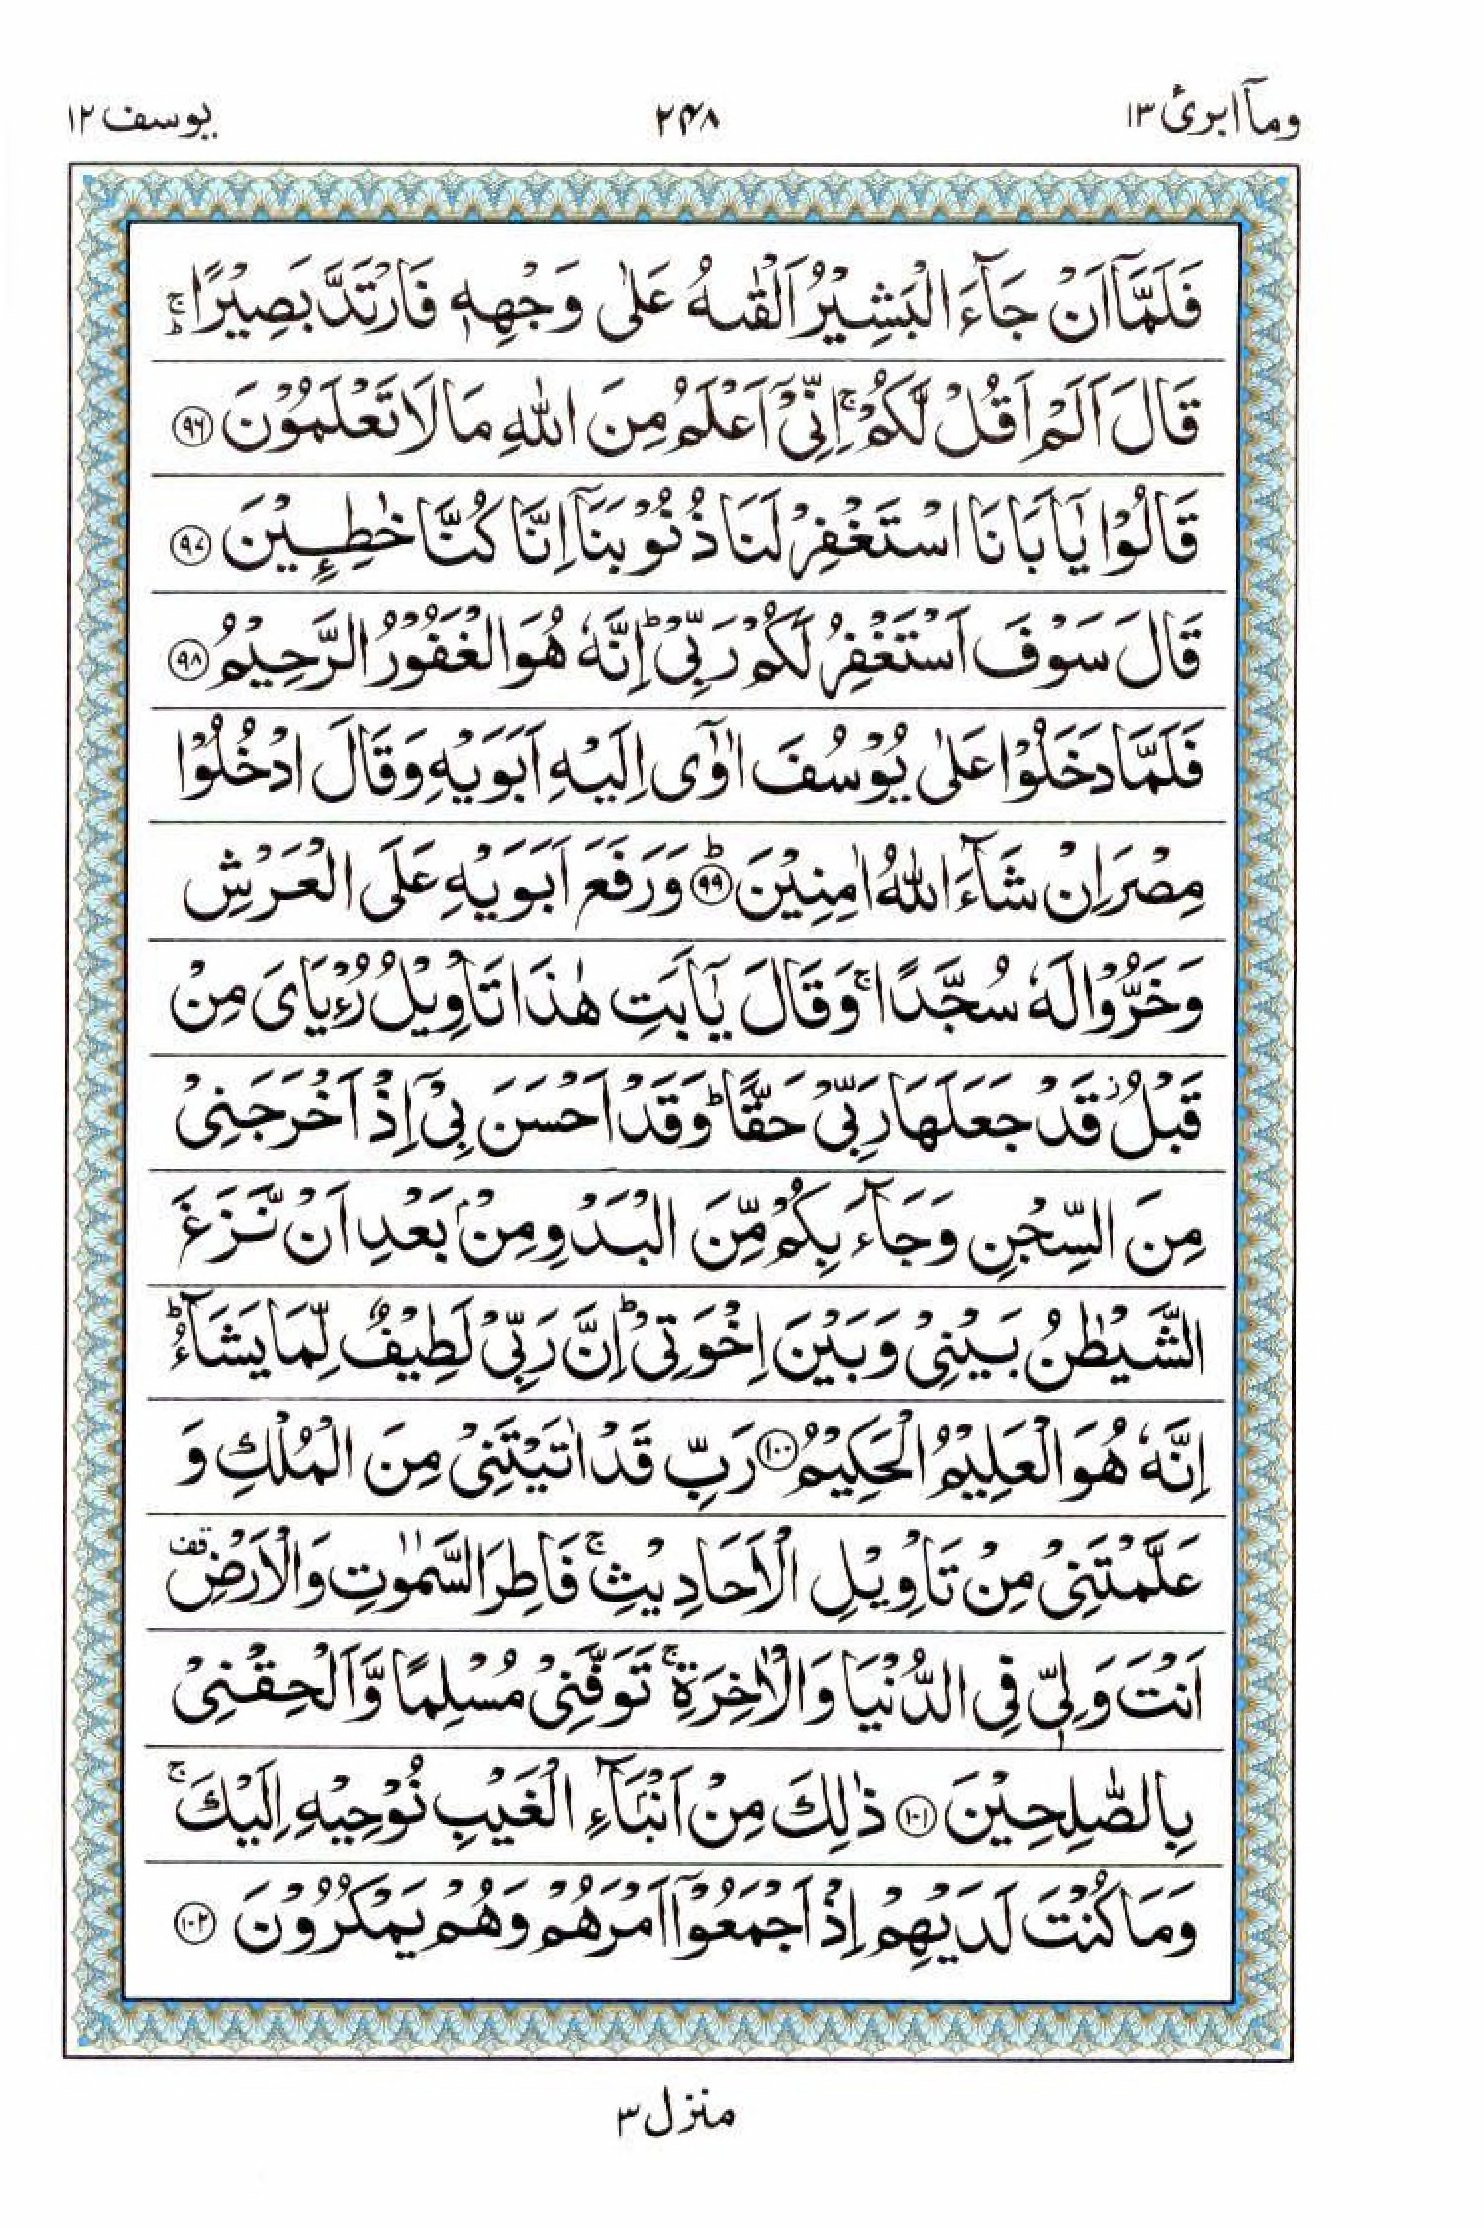 ومآ ابرئ ١٣ ٢٤٨ يوسف ١٢
فَلَمَّآ اَنْ جَآءَ الْبَشِيْرُ اَلْقٰىهُ عَلٰى وَجْهِهٖ فَارْتَدَّ بَصِيْرًا ۚؕ
قَالَ اَلَمْ اَقُلْ لَّكُمْ ۚ اِنِّىْۤ اَعْلَمُ مِنَ اللّٰهِ مَا لَا تَعْلَمُوْنَ ٩٦
قَالُوْا يٰۤاَبَانَا اسْتَغْفِرْ لَنَا ذُنُوْبَنَاۤ اِنَّا كُنَّا خٰطِـِٕيْنَ ٩٧
قَالَ سَوْفَ اَسْتَغْفِرُ لَكُمْ رَبِّىْ ؕ اِنَّهٗ هُوَ الْغَفُوْرُ الرَّحِيْمُ ٩٨
فَلَمَّا دَخَلُوْا عَلٰى يُوْسُفَ اٰوٰٓى اِلَيْهِ اَبَوَيْهِ وَقَالَ ادْخُلُوْا
مِصْرَ اِنْ شَآءَ اللّٰهُ اٰمِنِيْنَ ؕ ٩٩ وَرَفَعَ اَبَوَيْهِ عَلَى الْعَرْشِ
وَخَرُّوْا لَهٗ سُجَّدًا ۚ وَقَالَ يٰۤاَبَتِ هٰذَا تَاْوِيْلُ رُءْيَاىَ مِنْ
قَبْلُ ؗ قَدْ جَعَلَهَا رَبِّىْ حَقًّا ؕ وَقَدْ اَحْسَنَ بِىْۤ اِذْ اَخْرَجَنِىْ
مِنَ السِّجْنِ وَجَآءَ بِكُمْ مِّنَ الْبَدْوِ مِنْۢ بَعْدِ اَنْ نَّزَغَ
الشَّيْطٰنُ بَيْنِىْ وَبَيْنَ اِخْوَتِىْ ؕ اِنَّ رَبِّىْ لَطِيْفٌ لِّمَا يَشَآءُ ؕ
اِنَّهٗ هُوَ الْعَلِيْمُ الْحَكِيْمُ ١٠٠ رَبِّ قَدْ اٰتَيْتَنِىْ مِنَ الْمُلْكِ وَ
عَلَّمْتَنِىْ مِنْ تَاْوِيْلِ الْاَحَادِيْثِ ۚ فَاطِرَ السَّمٰوٰتِ وَالْاَرْضِ قف
اَنْتَ وَلِىّٖ فِى الدُّنْيَا وَالْاٰخِرَةِ ۚ تَوَفَّنِىْ مُسْلِمًا وَّاَلْحِقْنِىْ
بِالصّٰلِحِيْنَ ١٠١ ذٰلِكَ مِنْ اَنْۢبَآءِ الْغَيْبِ نُوْحِيْهِ اِلَيْكَ ۚ
وَمَا كُنْتَ لَدَيْهِمْ اِذْ اَجْمَعُوْۤا اَمْرَهُمْ وَهُمْ يَمْكُرُوْنَ ١٠٢
منزل ٣